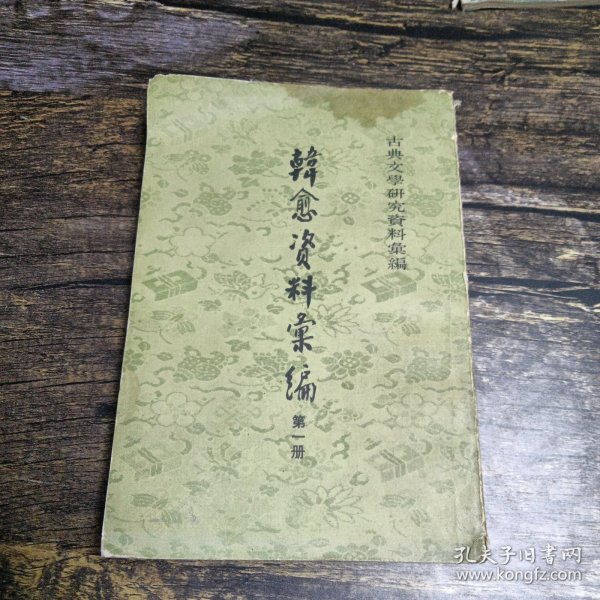 古典文學研究資料彙編
韓愈资料彙編
第一册
孔夫子旧書网
www.kongfz.com